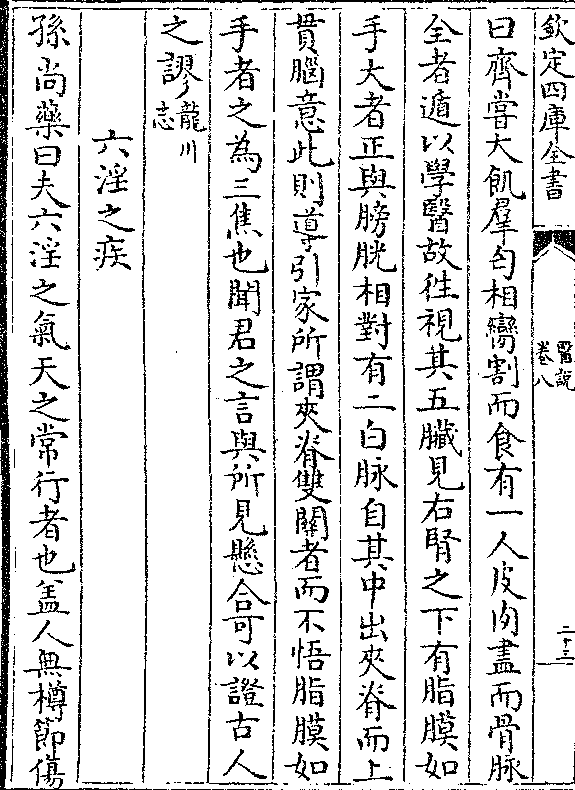 欽定四庫全書
醫說
卷八
二十三
曰齊嘗大飢羣匄相臠割而食有一人皮肉盡而骨脉
全者遁以學醫故徃視其五臓見右腎之下有脂膜如
手大者正與膀胱相對有二白脉自其中出夾脊而上
貫腦意此則導引家所謂夾脊雙關者而不悟脂膜如
手者之為三焦也聞君之言與所見懸合可以證古人
之謬龍川志
六淫之疾
孫尚藥曰夫六淫之氣天之常行者也盖人無樽節傷